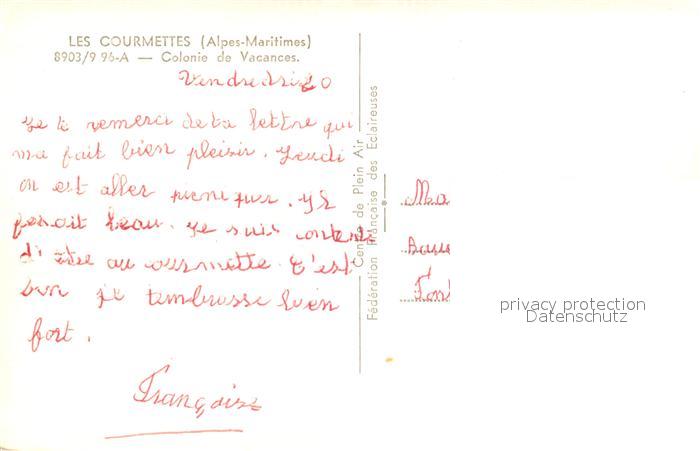 LES COURMETTES (Alpes-Maritimes)
8903/9 96-A — Colonie de Vacances.
Vendredi 20
Je te remerci de ta lettre qui
ma fait bien plaisir. Jeudi
on est aller pique. Il
fesait beau. Je suis contente
d'être au courmette. C'est
bon je tembrasse bien
fort.
Françoise
Centre de Plein Air
Fédération Française des Eclaireuses
Ma
privacy protection
Datenschutz